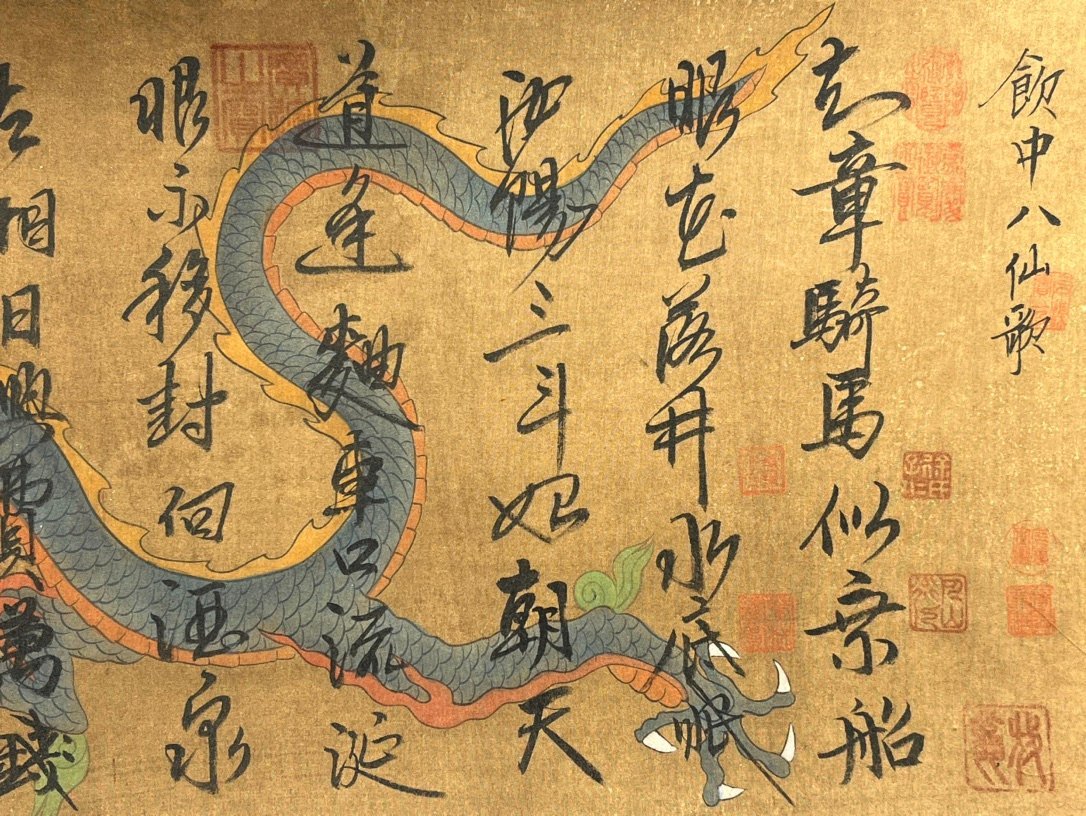 飲中八仙歌
知章騎馬似乘船
眼花落井水底眠
汝陽三斗始朝天
道逢麯車口流涎
恨不移封向酒泉
左相日興費萬錢